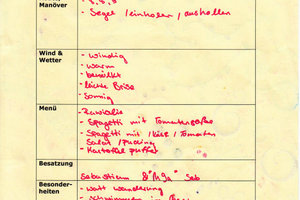 Manöver
- Segel /einholen /ausholen
Wind &
Wetter
- windig
- warm
- bewölkt
- leichte Brise
- sonnig
Menü
- Raviolie
- Spagetti mit Tomatensoße
- Spagetti mit /käse / Tomaten
Salat /Pudding
- Kartoffel puffer
Besatzung
Sebastian
Seb
Besonder-
heiten
- watt wanderung
- schwimmen im